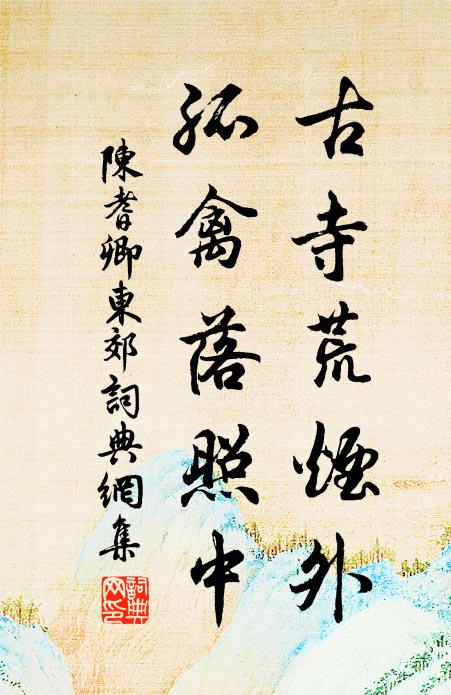 古寺荒煙外
孤禽落照中
陳耆卿東郊詞典網集
詞典網印